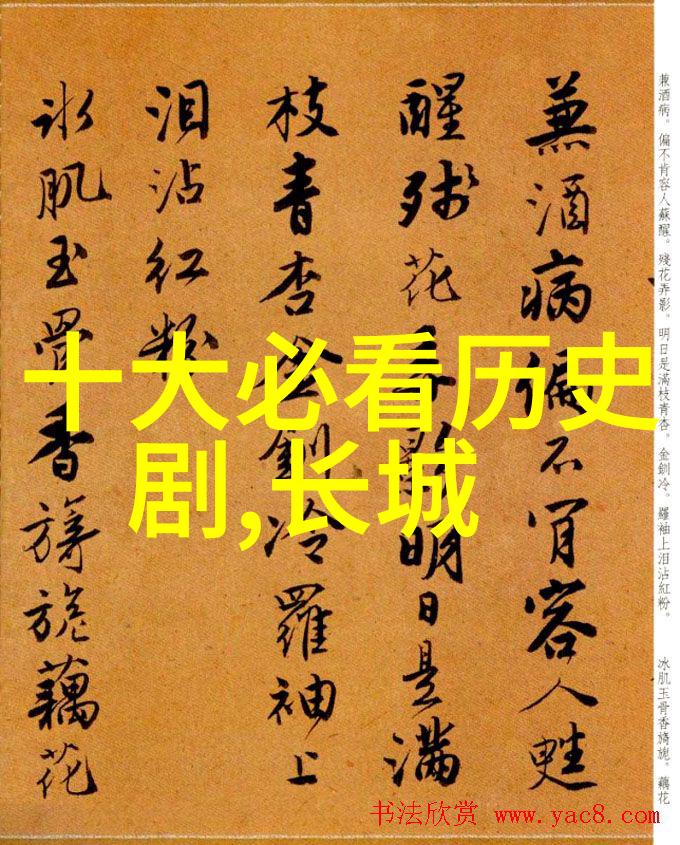 蕪酒病偏不肯容人甦
醒殘花弄影明日是滿
枝青杏金釧冷羅袖上
泪沾紅粉
冰肌玉骨香旖旎藕花
兼酒病。偏不肯容人蘇醒。殘花弄影。明日是滿枝青杏。金釧冷。羅袖上泪沾紅粉。
冰肌玉骨香旖旎。藕花
十大必看历史
剧,长城
书法欣赏 www.yac8.com